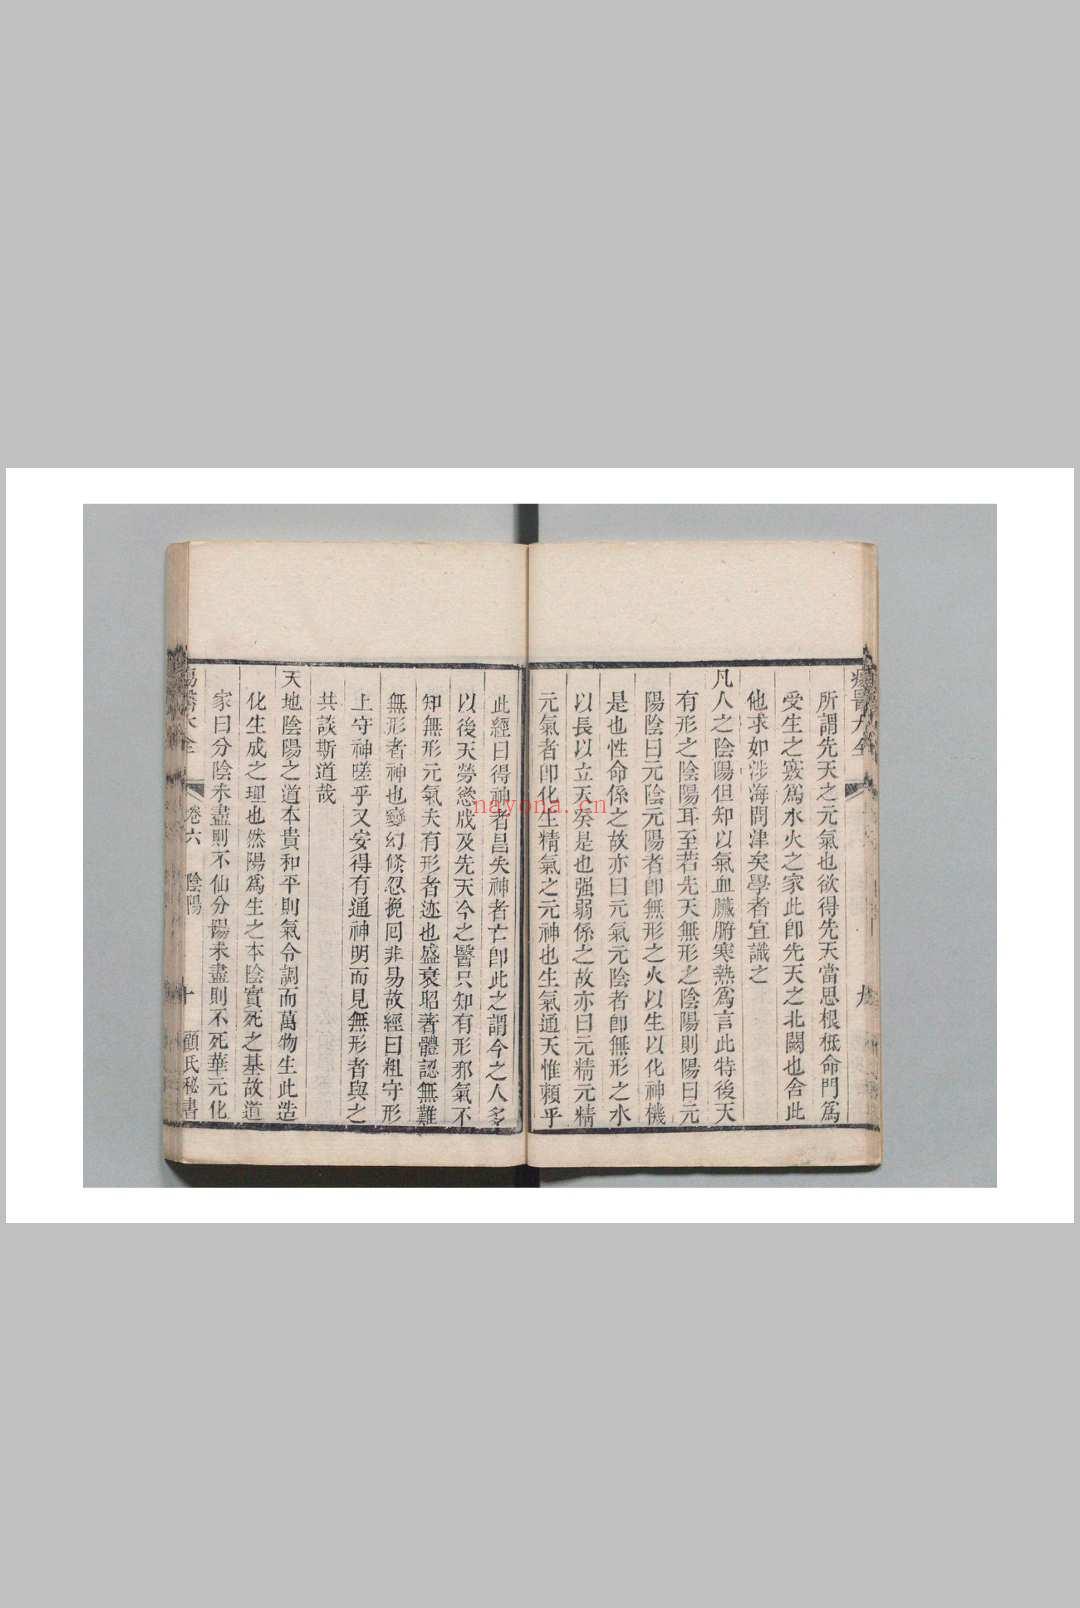 所謂先天之元氣也欲得先天當思根柢命門爲
受生之竅爲水火之家此卽先天之北闕也舍此
他求如涉海問津矣學者宜識之
凡人之陰陽但知以氣血臟腑寒熱爲言此特後天
有形之陰陽耳至若先天無形之陰陽則陽曰元
陽陰曰元陰元陽者卽無形之火以生以化神機
是也性命係之故亦曰元氣元陰者卽無形之水
以長以立天癸是也强弱係之故亦曰元精元精
元氣者卽化生精氣之元神也生氣通天惟賴乎
此經曰得神者昌失神者亡卽此之謂今之人多
以後天勞慾戕及先天今之醫只知有形邪氣不
知無形元氣夫有形者迹也盛衰昭著體認無難
無形者神也變幻倐忽挽囘非易故經曰粗守形
上守神嗟乎又安得有通神明而見無形者與之
共談斯道哉
天地陰陽之道本貴和平則氣令調而萬物生此造
化生成之理也然陽爲生之本陰實死之基故道
家曰分陰未盡則不仙分陽未盡則不死華元化
瘍醫大全
卷六 陰陽
十
顧氏秘書
nayona.cn